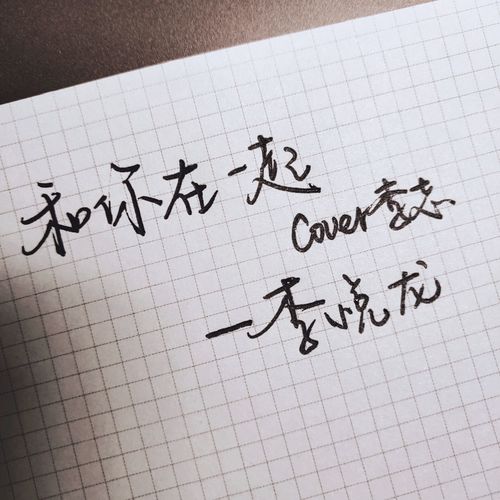 和你在一起
Cover李志
一李悦龙